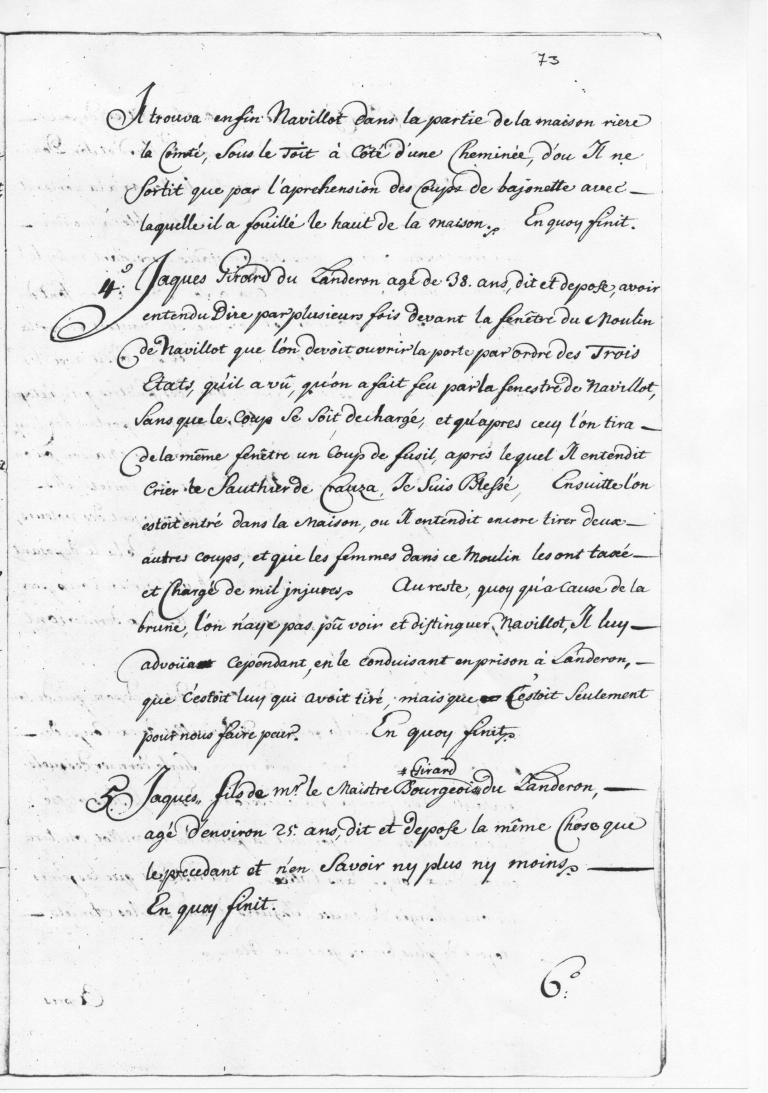 73
Il trouva enfin Navillot dans la partie de la maison riere
la Comté, sous le Toit à Côté d'une Cheminée, d'ou Il ne
Sortit que par l'aprehension des Coups de bajonette avec
laquelle il a fouillé le haut de la maison. En quoy finit.
4.° Jaques Girard du Landeron agé de 38. ans, dit et depose, avoir
entendu Dire par plusieurs fois devant la fenêtre du Moulin
de Navillot que l'on devoit ouvrir la porte par ordre des Trois
Etats, qu'il a vû, qu'on a fait feu par la fenestre de Navillot,
Sans que le Coup Se Soit dechargé, et qu'apres cecy l'on tira
de la même fenêtre un Coup de fusil, après lequel Il entendit
Crier le Sauthier de Crauza, Je Suis Blessé, Ensuitte l'on
estoit entré dans la Maison, ou Il entendit encore tirer deux
autres Coups, et que les femmes dans ce Moulin les ont taxé
et Chargé de mil jnjures. Au reste, quoy qu'a Cause de la
brune, l'on n'aye pas pû voir et distinguer Navillot, Il luy
advoüa Cependant, en le conduisant en prison à Landeron,
que c'estoit luy qui avoit tiré, mais que C'estoit Seulement
pour nous faire peur. En quoy finit.
Girard
5. Jaques, fils de mr. le Maistre Bourgeois du Landeron,
agé d'environ 25 ans, dit et depose la même Chose que
le precedant et n'en Savoir ny plus ny moins.
En quoy finit.
6.°